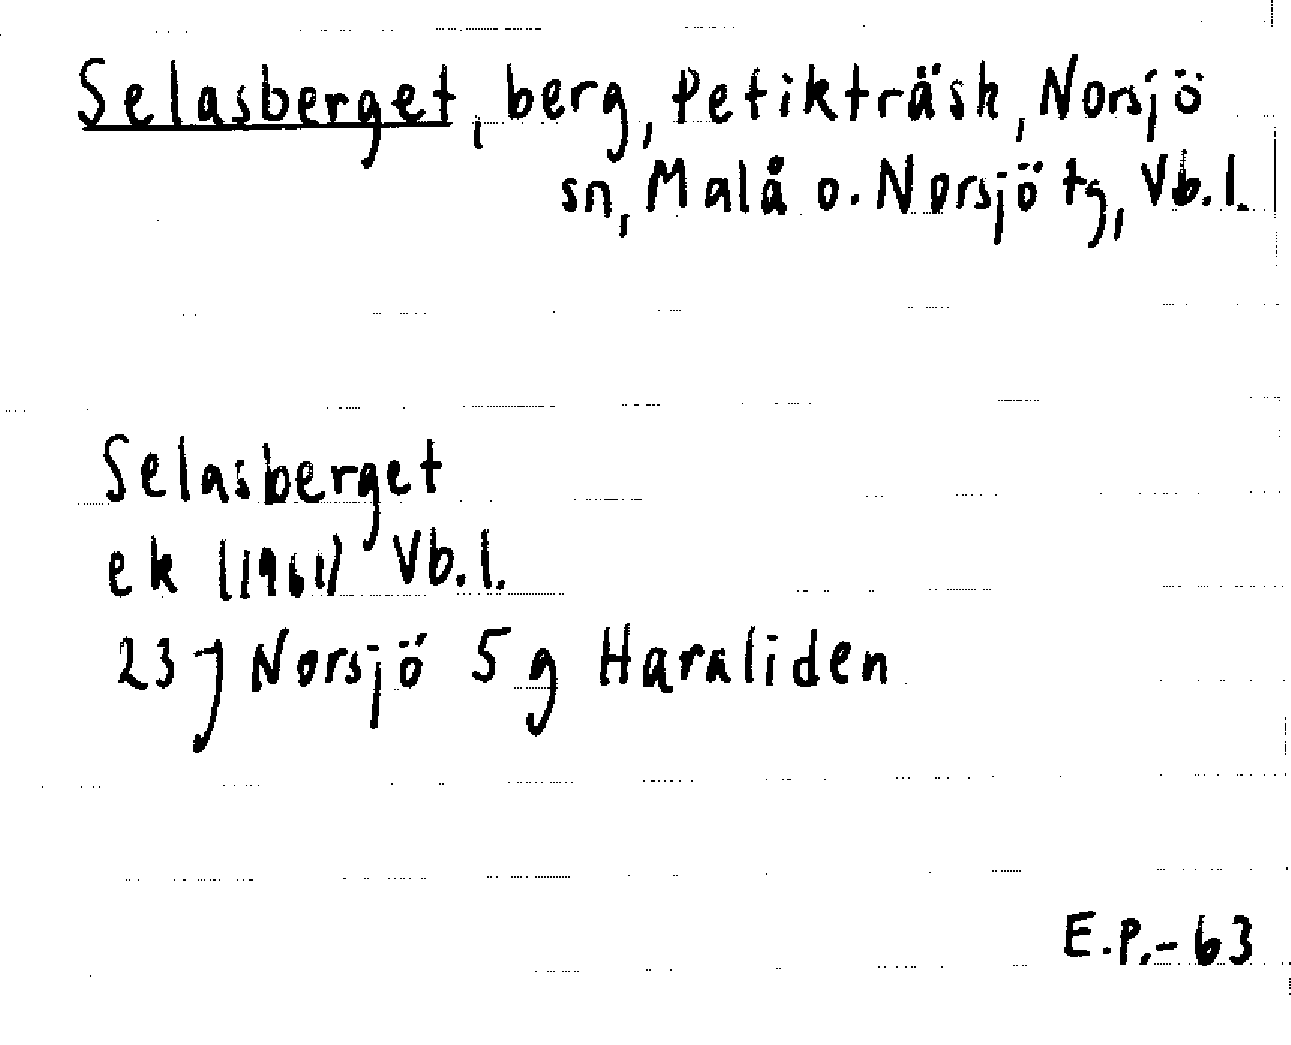 Selasberget, berg, Petikträsk, Norsjö
sn, Malå o. Norsjö tg, Vb.l.
Selasberget
ek (1961) Vb.l.
23 J Norsjö 5 g Haraliden
E.P.-63